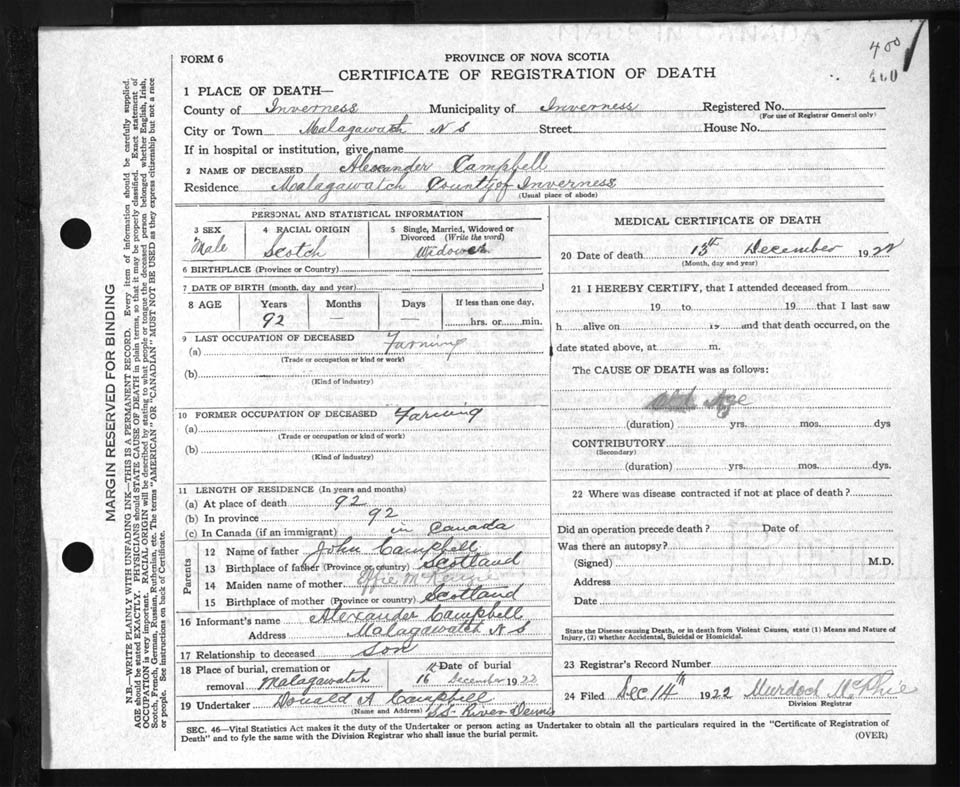 400
400
FORM 6
PROVINCE OF NOVA SCOTIA
CERTIFICATE OF REGISTRATION OF DEATH
1 PLACE OF DEATH—
County of Inverness Municipality of Inverness Registered No.
(For use of Registrar General only)
City or Town Malagawatch N S Street House No.
If in hospital or institution, give name
2 NAME OF DECEASED Alexander Campbell
Residence Malagawatch County of Inverness
(Usual place of abode)
PERSONAL AND STATISTICAL INFORMATION
3 SEX Male
4 RACIAL ORIGIN Scotch
5 Single, Married, Widowed or Divorced (Write the word)
Widower
6 BIRTHPLACE (Province or Country)
7 DATE OF BIRTH (month, day and year)
8 AGE Years Months Days If less than one day,
92 — — hrs. or min.
9 LAST OCCUPATION OF DECEASED Farming
(a)
(Trade or occupation or kind or work)
(b)
(Kind of industry)
10 FORMER OCCUPATION OF DECEASED Farming
(a)
(Trade or occupation or kind of work)
(b)
(Kind of industry)
11 LENGTH OF RESIDENCE (In years and months)
(a) At place of death 92
(b) In province 92
(c) In Canada (if an immigrant) in Canada
Parents
12 Name of father John Campbell
13 Birthplace of father (Province or country) Scotland
14 Maiden name of mother Effie McKenzie
15 Birthplace of mother (Province or country) Scotland
16 Informant's name Alexander Campbell
Address Malagawatch N S
17 Relationship to deceased Son
18 Place of burial, cremation or removal Malagawatch
Date of burial
16 December 1922
19 Undertaker Donald A Campbell
(Name and Address) S.S. River Dennis
MEDICAL CERTIFICATE OF DEATH
20 Date of death 13th December 1922
(Month, day and year)
21 I HEREBY CERTIFY, that I attended deceased from
19 to 19 that I last saw
h alive on 19 and that death occurred, on the
date stated above, at m.
The CAUSE OF DEATH was as follows:
Old Age
(duration) yrs. mos. dys
CONTRIBUTORY
(Secondary)
(duration) yrs. mos. dys.
22 Where was disease contracted if not at place of death?
Did an operation precede death? Date of
Was there an autopsy?
(Signed) M.D.
Address
Date
State the Disease causing Death, or in death from Violent Causes, state (1) Means and Nature of
Injury, (2) whether Accidental, Suicidal or Homicidal.
23 Registrar's Record Number
24 Filed Dec 14th 1922 Murdoch McPhie
Division Registrar
SEC. 46—Vital Statistics Act makes it the duty of the Undertaker or person acting as Undertaker to obtain all the particulars required in the "Certificate of Registration of
Death" and to fyle the same with the Division Registrar who shall issue the burial permit.
(OVER)
MARGIN RESERVED FOR BINDING
N.B.—WRITE PLAINLY WITH UNFADING INK—THIS IS A PERMANENT RECORD. Every item of information should be carefully supplied.
AGE should be stated EXACTLY. PHYSICIANS should STATE CAUSE OF DEATH in plain terms, so that it may be properly classified. Exact statement of
OCCUPATION is very important. RACIAL ORIGIN will be described by stating to what people or tongue the deceased person belonged whether English, Irish,
Scotch, French, German, Russian, Ruthenian, etc. The terms "AMERICAN" OR "CANADIAN" MUST NOT BE USED as they express citizenship but not a race
or people. See instructions on back of Certificate.